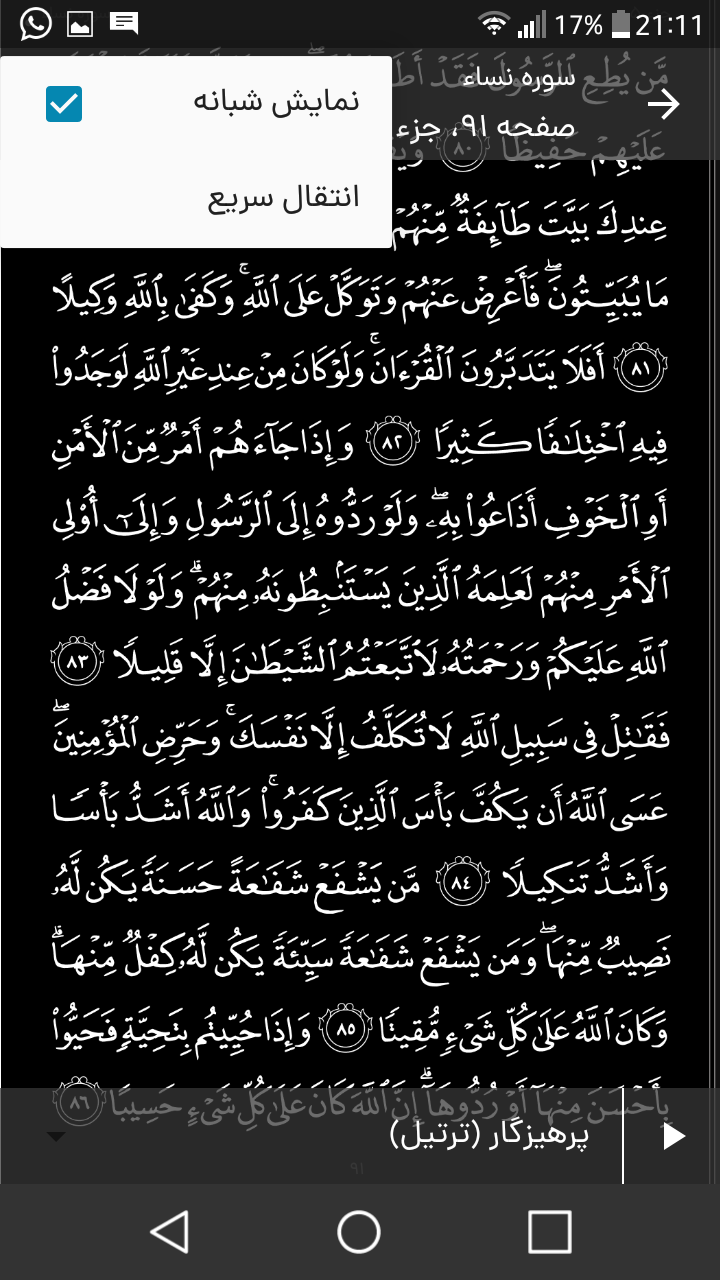 21:11 17%
مَّن يُطِعِ ٱلرَّسُولَ فَقَدْ
سوره نساء
صفحه ۹۱، جزء
نمایش شبانه
انتقال سریع
عَلَيْهِمْ حَفِيظًا ٨٠
عِندِكَ بَيَّتَ طَآئِفَةٌ مِّنْهُمْ
مَا يُبَيِّتُونَۖ فَأَعْرِضْ عَنْهُمْ وَتَوَكَّلْ عَلَى ٱللَّهِۚ وَكَفَىٰ بِٱللَّهِ وَكِيلًا
٨١ أَفَلَا يَتَدَبَّرُونَ ٱلْقُرْءَانَۚ وَلَوْ كَانَ مِنْ عِندِ غَيْرِ ٱللَّهِ لَوَجَدُوا۟
فِيهِ ٱخْتِلَٰفًا كَثِيرًا ٨٢ وَإِذَا جَآءَهُمْ أَمْرٌ مِّنَ ٱلْأَمْنِ
أَوِ ٱلْخَوْفِ أَذَاعُوا۟ بِهِۦۖ وَلَوْ رَدُّوهُ إِلَى ٱلرَّسُولِ وَإِلَىٰٓ أُو۟لِى
ٱلْأَمْرِ مِنْهُمْ لَعَلِمَهُ ٱلَّذِينَ يَسْتَنۢبِطُونَهُۥ مِنْهُمْۗ وَلَوْلَا فَضْلُ
ٱللَّهِ عَلَيْكُمْ وَرَحْمَتُهُۥ لَٱتَّبَعْتُمُ ٱلشَّيْطَٰنَ إِلَّا قَلِيلًا ٨٣
فَقَٰتِلْ فِى سَبِيلِ ٱللَّهِ لَا تُكَلَّفُ إِلَّا نَفْسَكَۚ وَحَرِّضِ ٱلْمُؤْمِنِينَۖ
عَسَى ٱللَّهُ أَن يَكُفَّ بَأْسَ ٱلَّذِينَ كَفَرُوا۟ۚ وَٱللَّهُ أَشَدُّ بَأْسًا
وَأَشَدُّ تَنكِيلًا ٨٤ مَّن يَشْفَعْ شَفَٰعَةً حَسَنَةً يَكُن لَّهُۥ
نَصِيبٌ مِّنْهَاۖ وَمَن يَشْفَعْ شَفَٰعَةً سَيِّئَةً يَكُن لَّهُۥ كِفْلٌ مِّنْهَاۗ
وَكَانَ ٱللَّهُ عَلَىٰ كُلِّ شَىْءٍ مُّقِيتًا ٨٥ وَإِذَا حُيِّيتُم بِتَحِيَّةٍ فَحَيُّوا۟
بِأَحْسَنَ مِنْهَآ أَوْ رُدُّوهَآۗ إِنَّ ٱللَّهَ كَانَ عَلَىٰ كُلِّ شَىْءٍ حَسِيبًا ٨٦
پرهیزگار (ترتیل)
۹۱